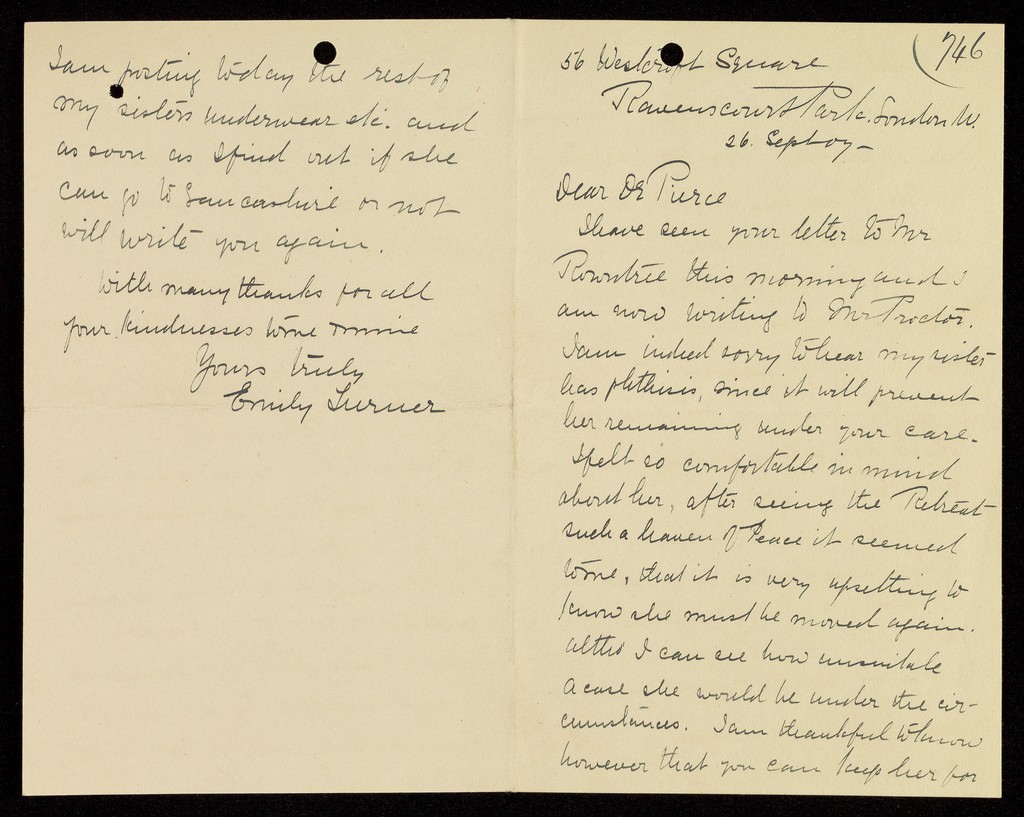 (746
56 Westcroft Square
Ravenscourt Park. London W.
26. Sept 07 –
Dear Dr Pierce
I have seen your letter to Mr
Rowntree this morning and I
am now writing to Mr Proctor.
I am indeed sorry to hear my sister
has phthisis, since it will prevent
her remaining under your care.
I felt so comfortable in mind
about her, after seeing the Retreat
such a haven of Peace it seemed
to me, that it is very upsetting to
know she must be moved again.
altho I can see how unsuitable
a case she would be under the cir-
cumstances. I am thankful to know
however that you can keep her for
I am posting today the rest of
my sisters underwear etc. and
as soon as I find out if she
can go to Lancashire or not
will write you again.
With many thanks for all
your kindnesses to me & mine
Yours truly
Emily Turner